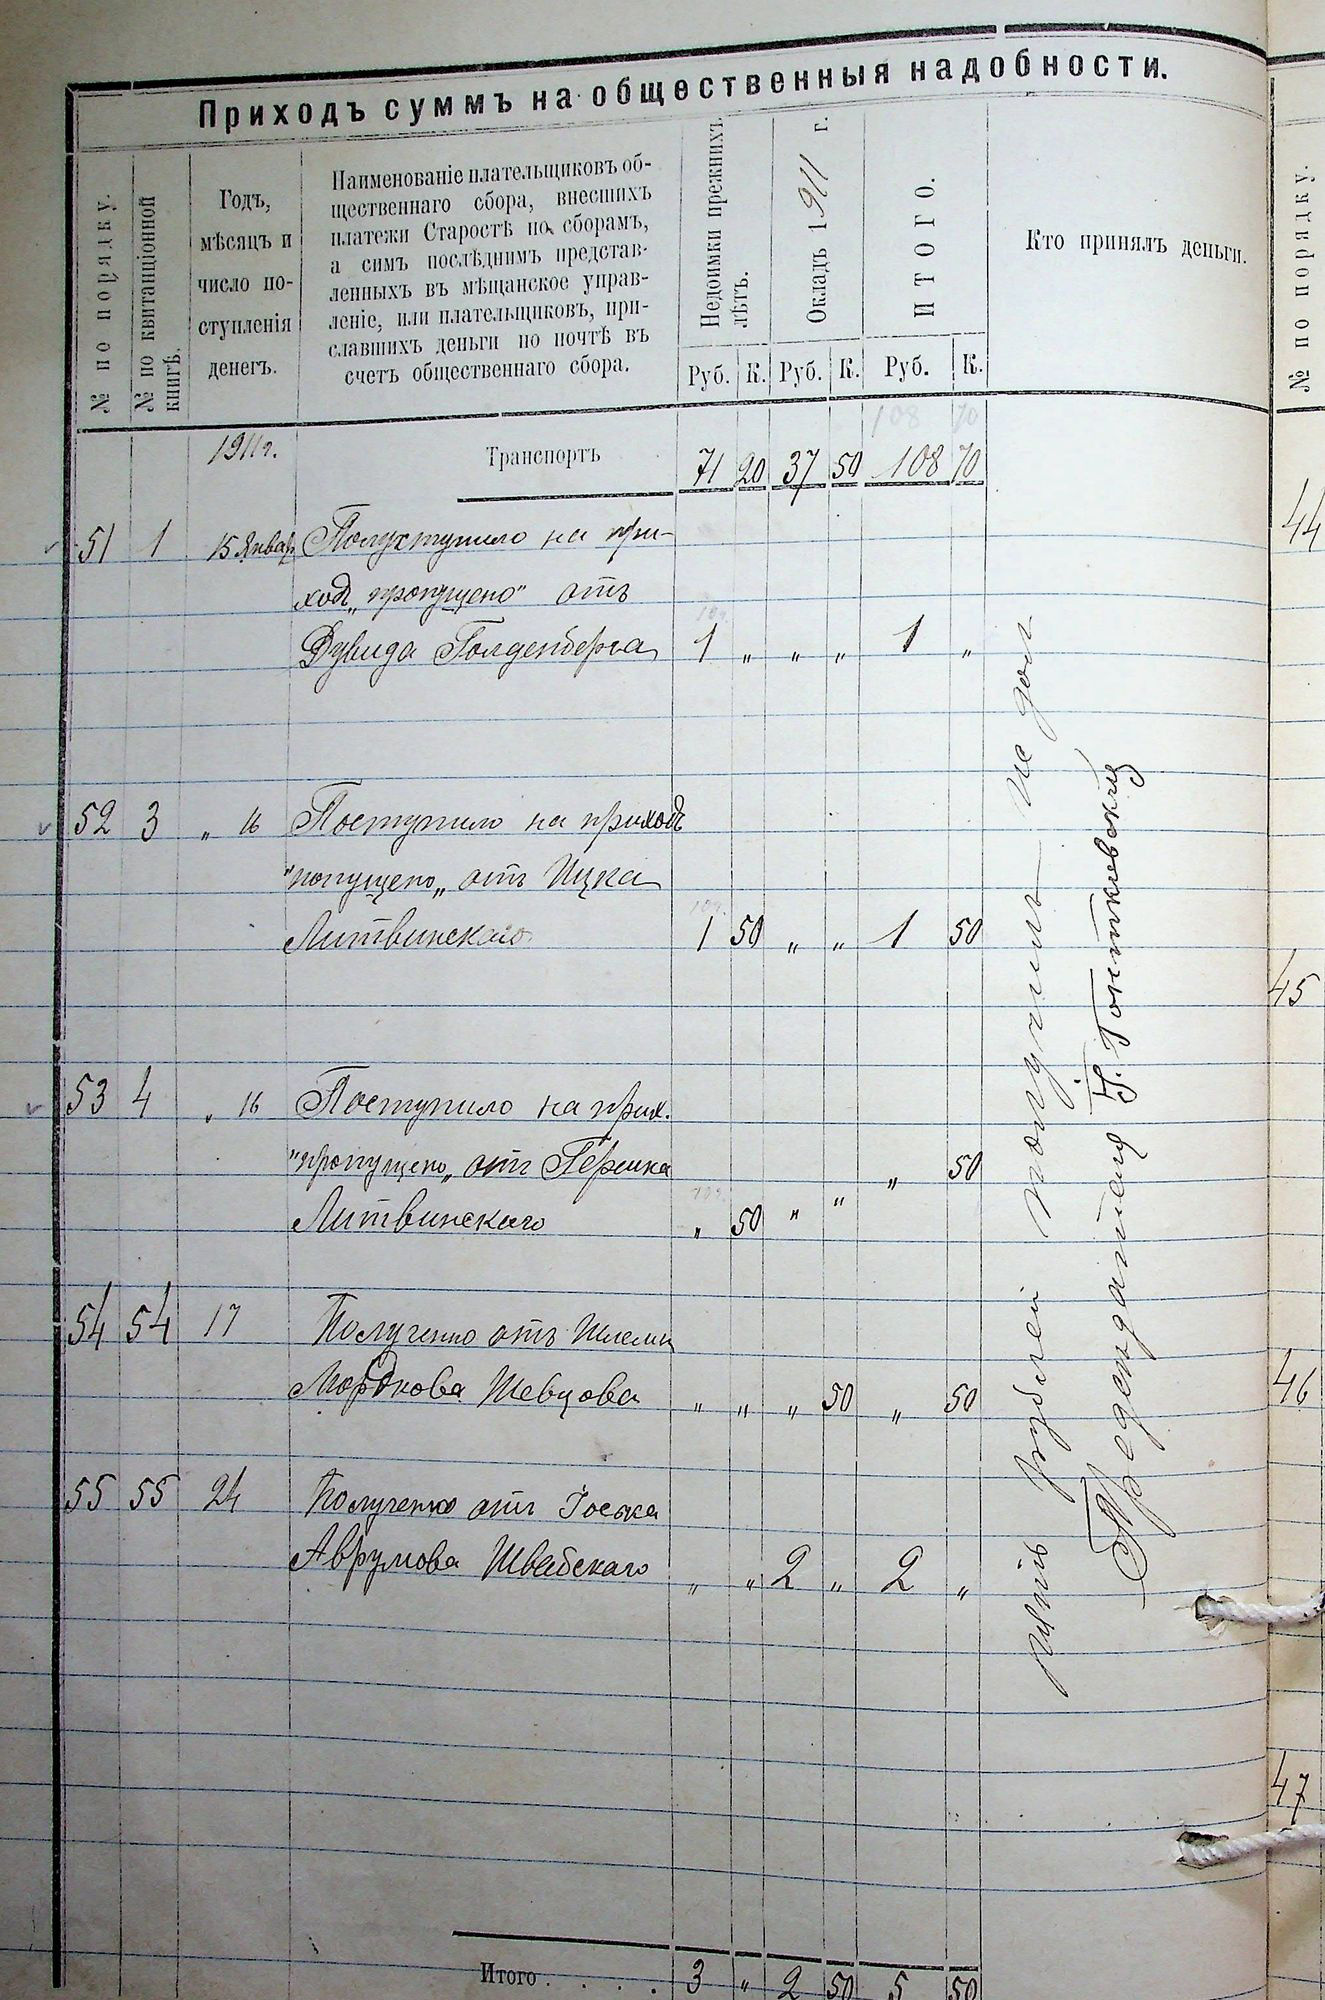 Приходъ суммъ на общественныя надобности.
№ по порядку.
№ по квитанціонной
книгѣ.
Годъ,
мѣсяцъ и
число по-
ступленія
денегъ.
Наименованіе плательщиковъ об-
щественнаго сбора, внесшихъ
платежи Старостѣ по сборамъ,
а симъ послѣднимъ представ-
ленныхъ въ мѣщанское управ-
леніе, или плательщиковъ, при-
славшихъ деньги по почтѣ въ
счетъ общественнаго сбора.
Недоимки прежнихъ
лѣтъ.
Окладъ 1911 г.
ИТОГО.
Кто принялъ деньги.
Руб. К. Руб. К. Руб. К.
№ по порядку.
108 70
1911 г. Транспортъ 71 20 37 50 108 70
51 1 15 Январ. Полуступило на при-
ходъ „пропущено" отъ
Дувида Голденберга 1 „ „ „ 1 „
52 3 „ 16 Поступило на приходъ
"попущено„ отъ Ицка
Литвинскаго 1 50 „ „ 1 50
53 4 „ 16 Поступило на прих.
"пропущено„ отъ Гершка „ 50
Литвинскаго „ 50 „ „
54 54 17 Полученно отъ Шлемы
Мордкова Шевцова „ „ „ 50 „ 50
55 55 24 Полученно отъ Іоська
Аврумова Швабскаго „ „ 2 „ 2 „
пять рублей получилъ
Г. Понтковский
Итого . . . . 3 „ 2 50 5 50
44
45
46
47